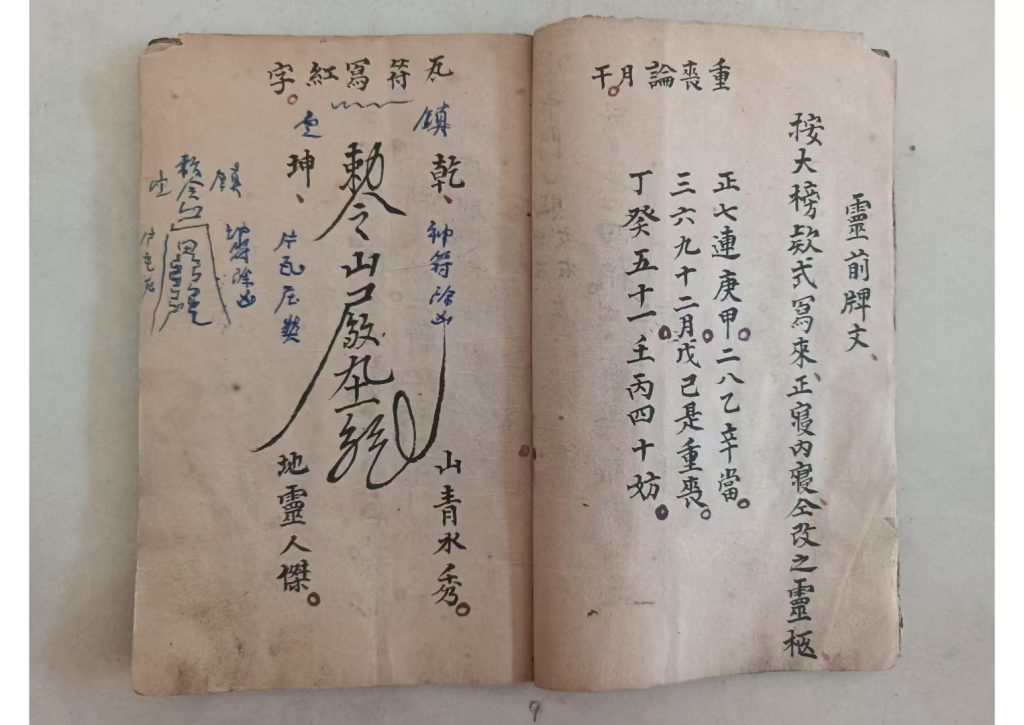 靈前牌文
按大榜欵式寫來正寢內寢仝改之靈柩
重喪論月干
正七連庚甲二八乙辛當
三六九十二月戊己是重喪
丁癸五十一壬丙四十妨
瓦符寫紅字
鎮
乾
神符除凶
山青水秀
勅令
坤
片瓦压煞
地靈人傑
鎮
神符除凶
勅令